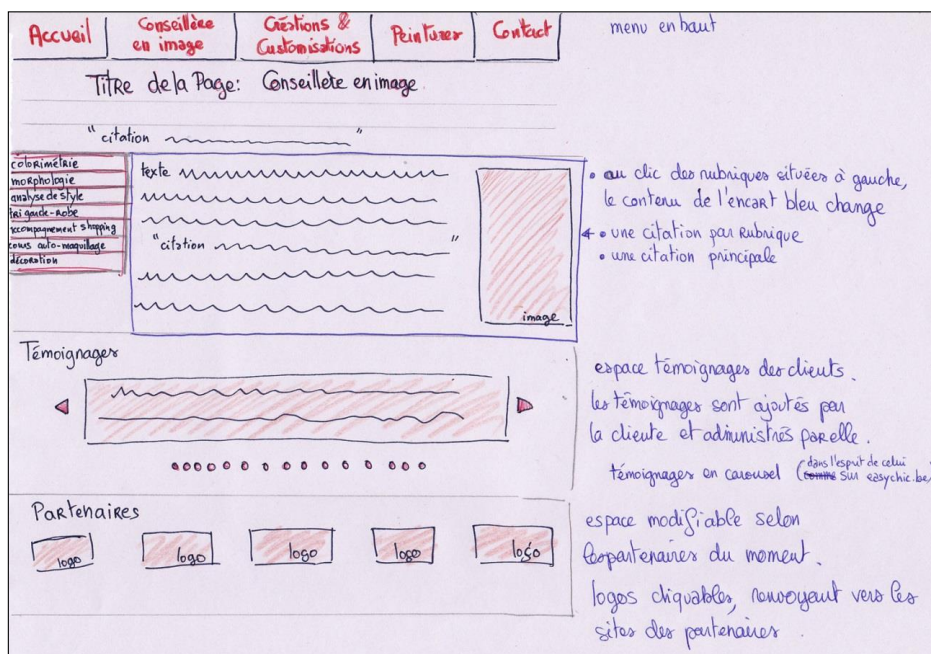 Accueil
Conseillère
en image
Créations &
Customisations
Peintures
Contact
menu en haut
Titre de la Page: Conseillère en image
"citation"
colorimétrie
morphologie
analyse de style
tri garde-robe
accompagnement shopping
cours auto-maquillage
décoration
texte
"citation"
image
• au clic des rubriques situées à gauche,
le contenu de l'encart bleu change
• une citation par rubrique
• une citation principale
Témoignages
espace témoignages des clients.
les témoignages sont ajoutés par
la cliente et administrés par elle.
témoignages en carousel (dans l'esprit de celui
sur easychic.be)
Partenaires
logo
logo
logo
logo
logo
espace modifiable selon
les partenaires du moment.
logos cliquables, renvoyent vers les
sites des partenaires.